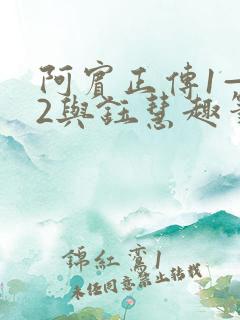 阿賓正傳1—
2與鈺慧趣
錦紅鸞1
未经同意禁止转载